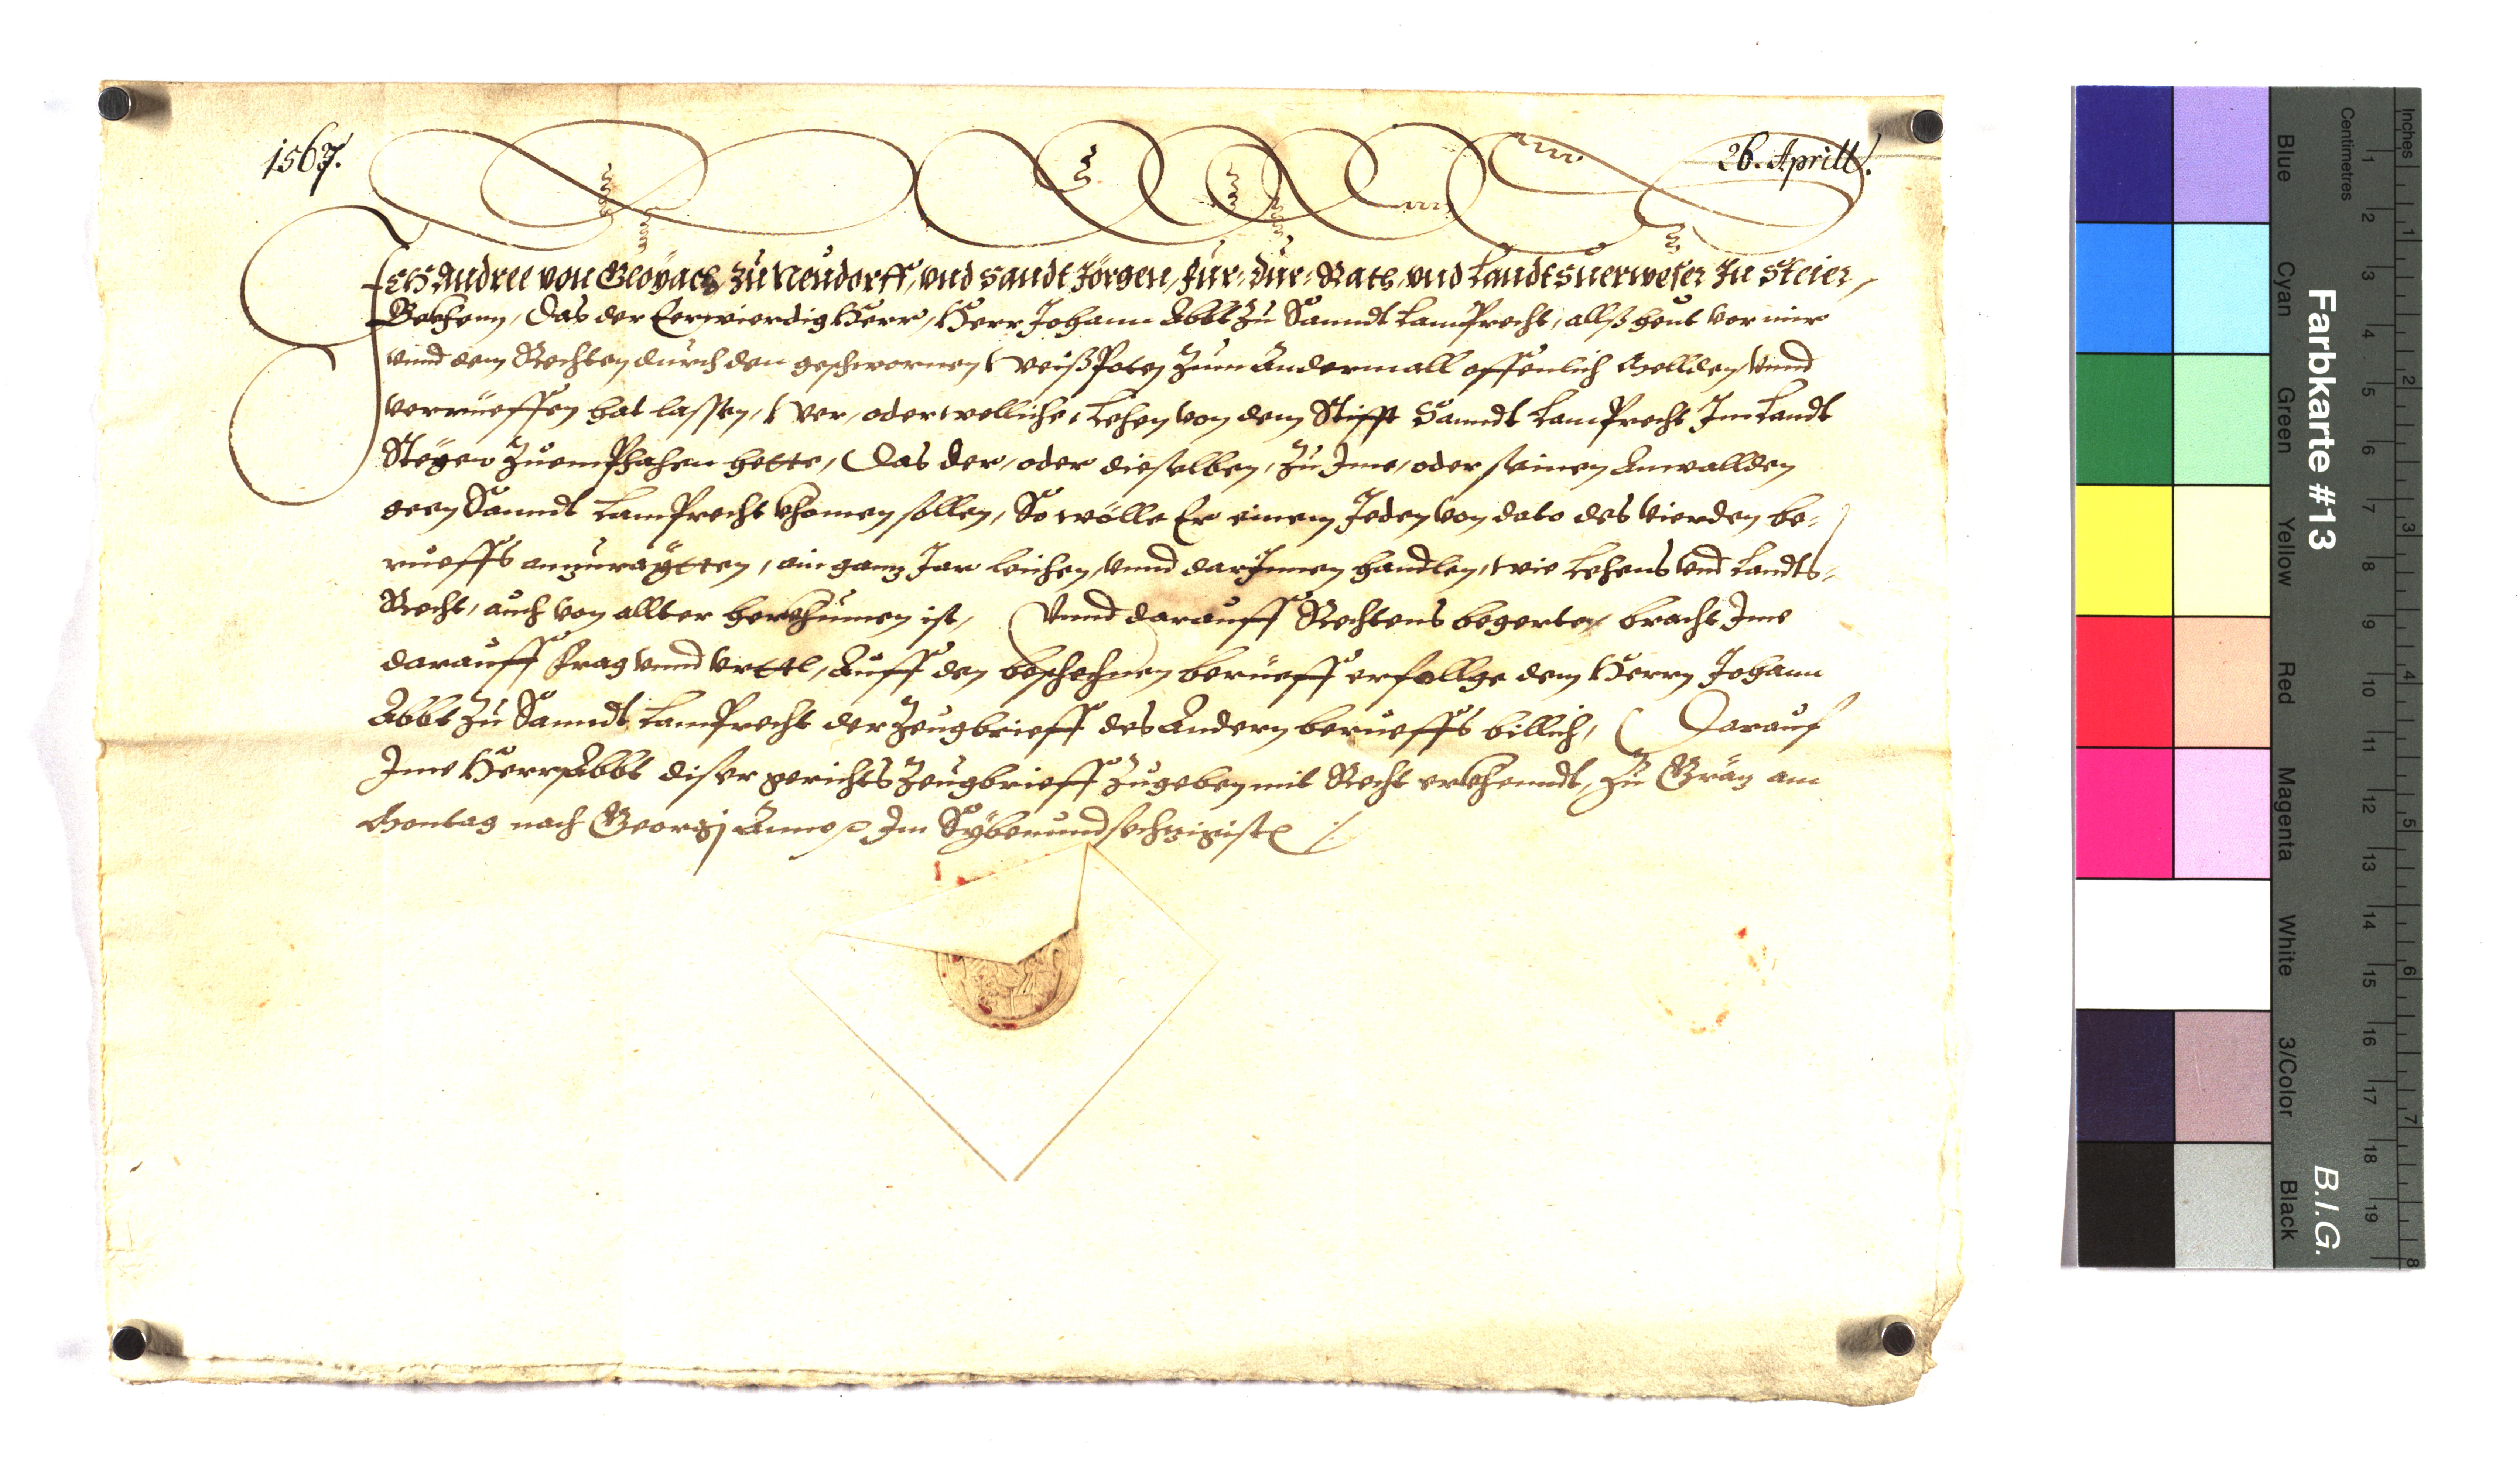 1567.
26. Aprill.
Ich Andree von Gloyach zu Neudorff, vnd Sandt Jörgen, Für: Dur: Rath, vnd Landtsuerweser In Steier,
Bekhenn, Das der Eerwierdig Herr, Herr Johann Abbt zu Sanndt Lamprecht, allß heut vor mir
vnnd dem Rechten durch den geschwornen Weißpoten zum Andermall offenlich Mellden, vnnd
verrüeffen hat lassen, Wer, oder welliche, Lehen von dem Stifft Sanndt Lamprecht Im Landt
Steyer zuemphahen hette, Das der, oder dieselben, zu Ime, oder seinen Anwallden
geen Sanndt Lamprecht khomen sollen, So wölle Er einem Jeden von dato des vierden be-
rueffs anzuraytten, ain ganz Jar leichen, vnnd darJnnen handlen, wie Lehens vnd Landts-
Recht, auch von allter herkhumen ist, Vnnd darauff Rechtens begerten, bracht Ime
darauff Frag vnnd Vrttl, Auff den beschechnen berüeff erfollge dem Herrn Johann
Abbt zu Sanndt Lamprecht der Zeugbrieff des Andern berueffs billich, Darauf
Ime Herrn Abbt diser gerichts Zeugbrieff zugeben mit Recht erkhenndt, Zu Gräz am
Montag nach Georgj Anno Im Sybenundsechzigisten
Farbkarte #13
B.I.G.
Centimetres
Inches
Blue
Cyan
Green
Yellow
Red
Magenta
White
3/Color
Black
1 2 3 4 5 6 7 8 9 10 11 12 13 14 15 16 17 18 19
1 2 3 4 5 6 7 8